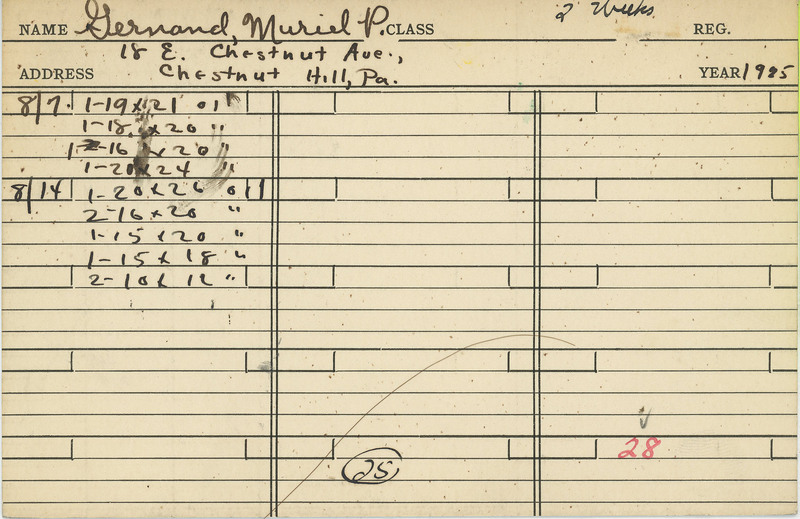 NAME Gernand, Muriel P. CLASS 2 Weeks REG.
18 E. Chestnut Ave.,
ADDRESS Chestnut Hill, Pa. YEAR 1925
8/7 1-19 x 21 oil
1-18 x 20 "
1-16 x 20 "
1-20 x 24 "
8/14 1-20 x 26 oil
2-16 x 20 "
1-15 x 20 "
1-15 x 18 "
2-10 x 12 "
28
25